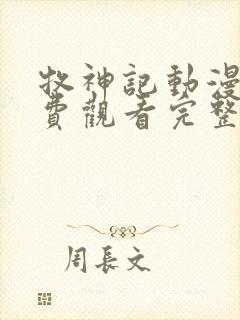 牧神記動漫
費觀看完整
周長文